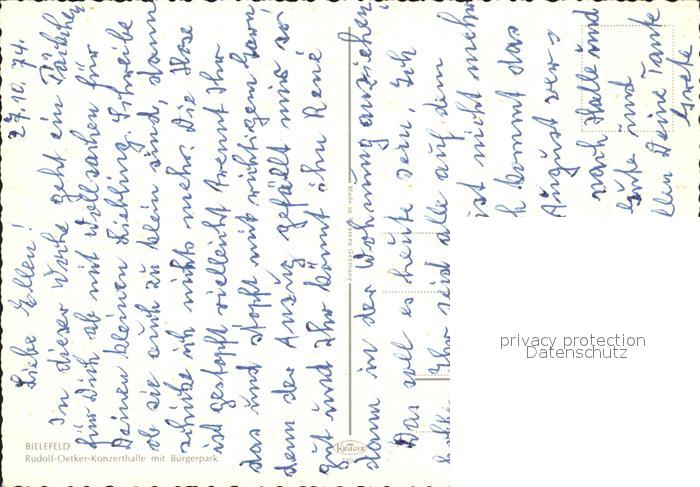 27.10.74.
Liebe Ellen!
In dieser Woche geht ein Päckchen
für Dich ab mit Wollsachen für
Deinen kleinen Liebling. Schreibe
ob sie auch zu klein sind, dann
schicke ich nichts mehr. Die Hose
ist gestopft vielleicht trennt Ihr
das und stopft mit richtigem Garn,
denn der Anzug gefällt mir so
gut und Ihr könnt ihn René
dann in der Wohnung anziehen
Das soll es heute sein, Ich
Ihr seid alle auf dem
ist nicht mehr
h kommt das
August vers
nach Halle und
Gute und
llen Deine Tante
Grete
BIELEFELD
Rudolf-Oetker-Konzerthalle mit Bürgerpark
Made in Western Germany
KRÜGER
privacy protection
Datenschutz